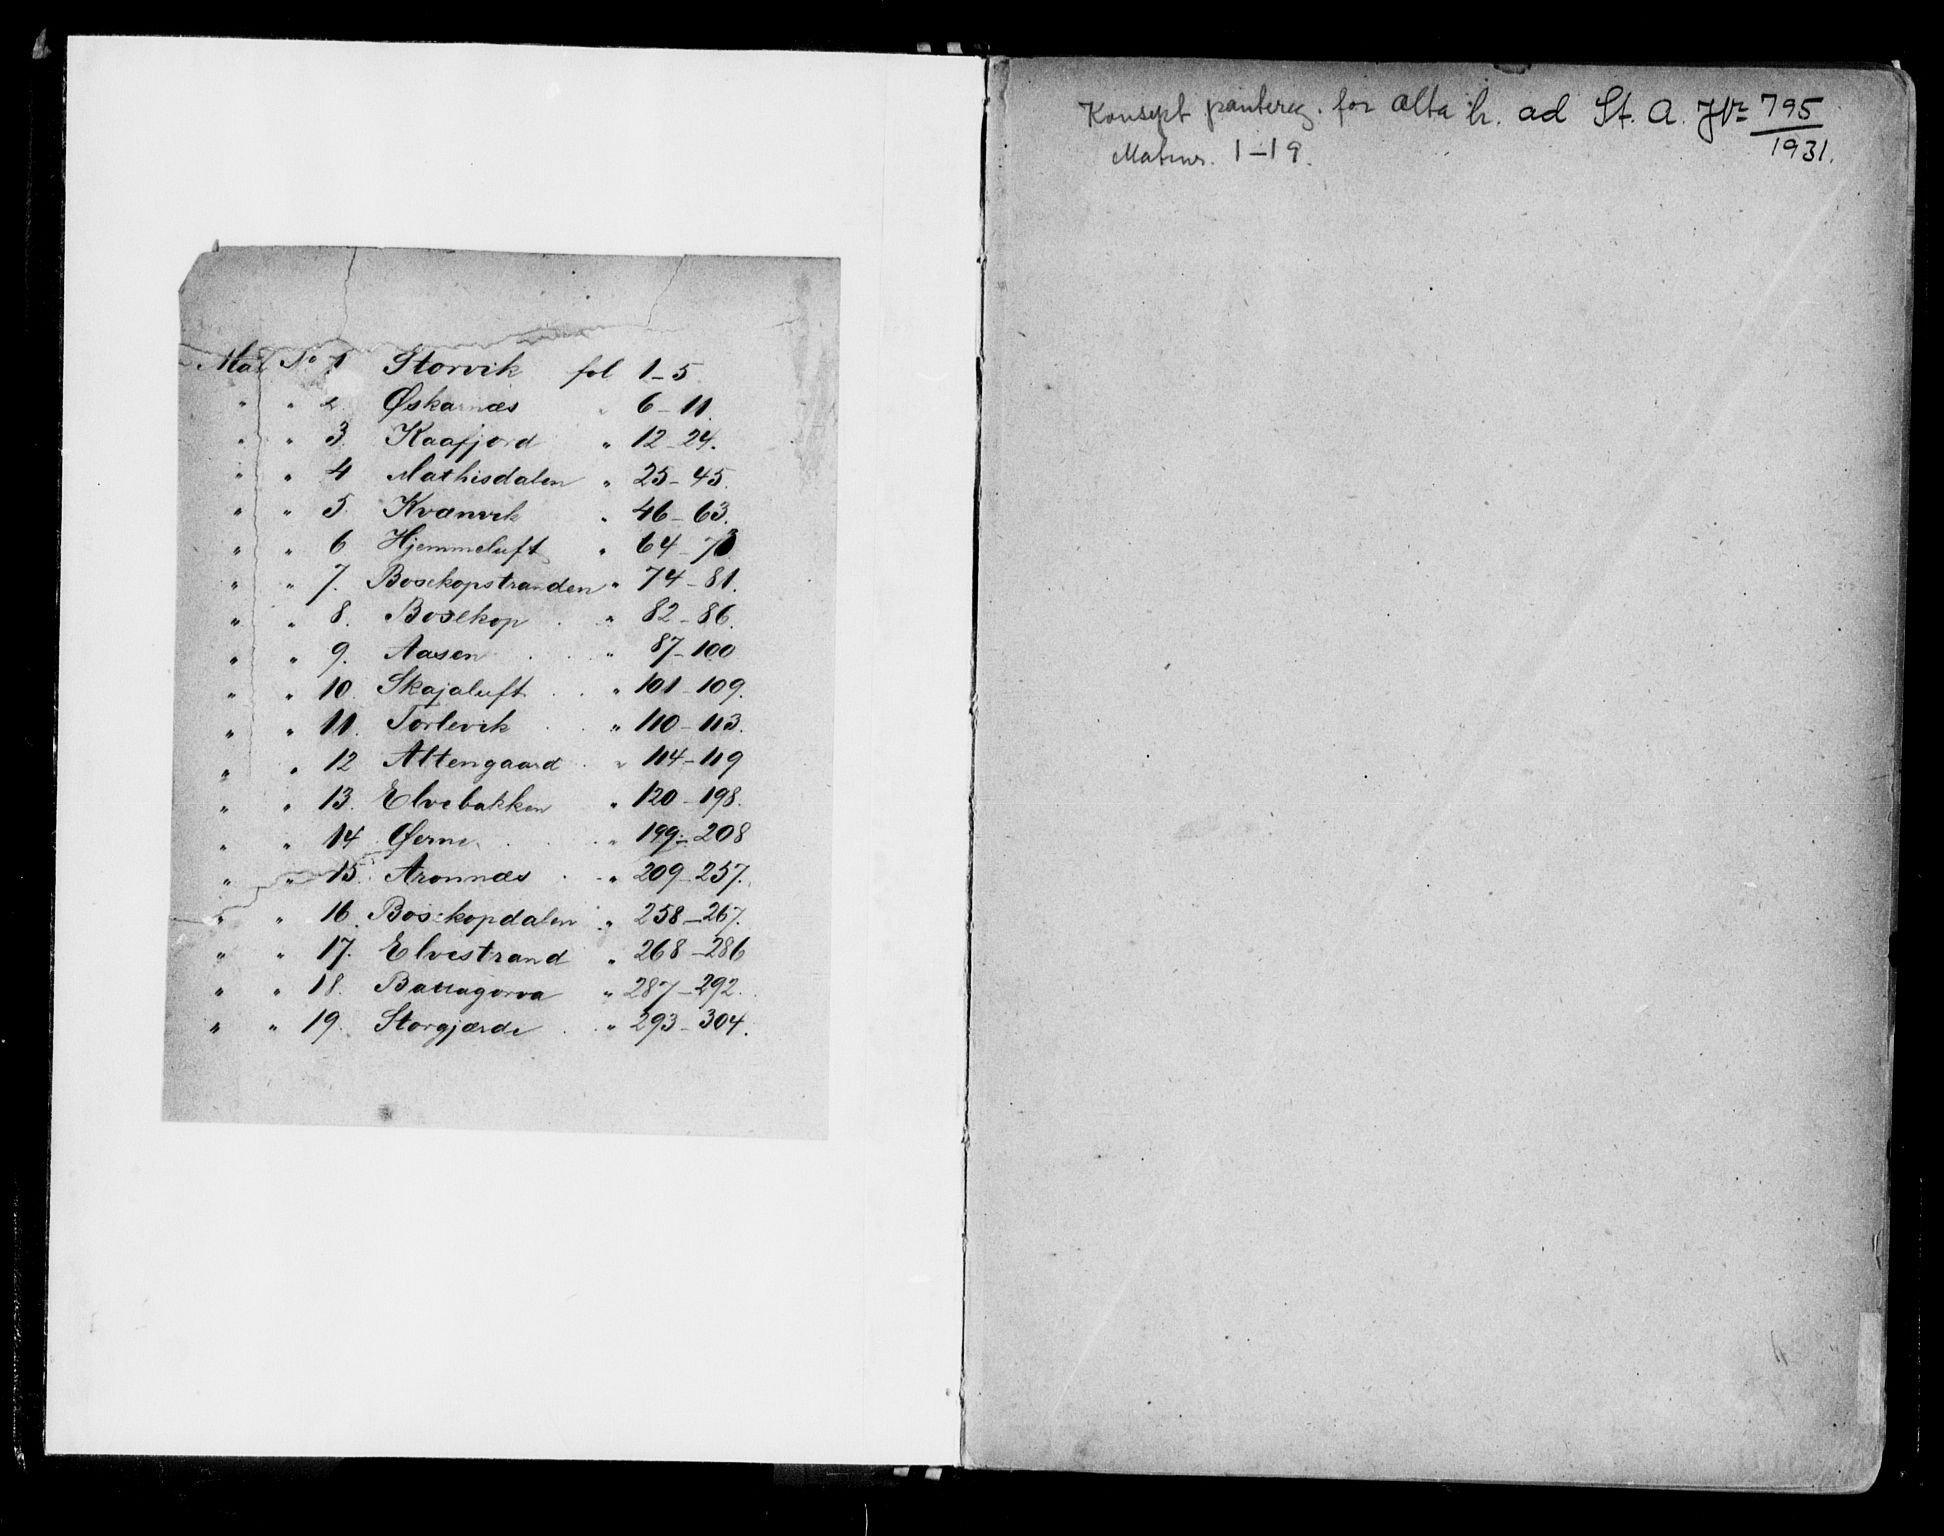 Mat No 1 Storvik fol 1-5
" " 2. Øskarnæs " 6-11.
" " 3. Kaafjord " 12-24.
" " 4 Mathisdalen " 25-45.
" " 5. Kvænvik " 46-63.
" " 6 Hjemmeluft " 64-73
" " 7. Bosekopstranden " 74-81.
" " 8. Bosekop " 82-86.
" " 9. Aasen " 87-100
" " 10. Skajaluft " 101-109.
" " 11. Torlevik " 110-113.
" " 12 Altengaard " 114-119
" " 13. Elvebakken " 120-198.
" " 14 Øerne " 199-208
" " 15. Aronnæs " 209-257.
" " 16. Bosekopdalen " 258-267.
" " 17. Elvestrand " 268-286
" " 18. " 287-292.
" " 19. Storgjærde " 293-304.
Konsept pantereg. for Alta h. ad St. A. JNr 795/1931.
Matrnr. 1-19.